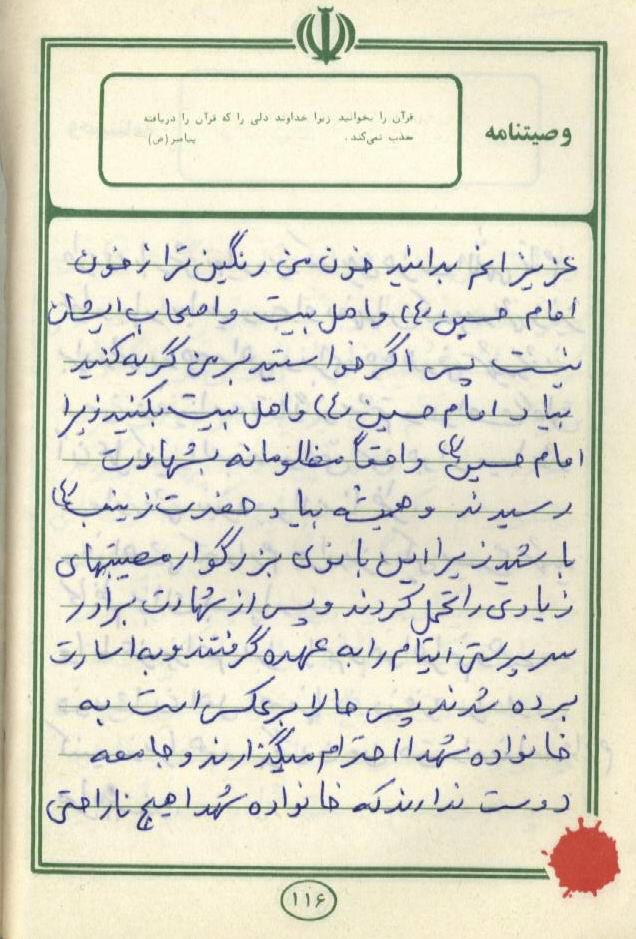 وصیتنامه
قرآن را بخوانید زیرا خداوند دلی را که قرآن را دریافته
عذب نمی‌کند . پیامبر (ص)
عزیزانم بدانید خون من رنگین تر از خون
امام حسین (ع) و اهل بیت و اصحاب ایشان
نیست پس اگر خواستید بر من گریه کنید
بیاد امام حسین (ع) و اهل بیت بکنید زیرا
امام حسین (ع) واقعاً مظلومانه بشهادت
رسیدند و همیشه بیاد حضرت زینب (س)
باشید زیرا این بانوی بزرگوار مصیبتهای
زیادی را تحمل کردند و پس از شهادت برادر
سرپرستی ایتام را به عهده گرفتند و به اسارت
برده شدند پس حالا برعکس است به
خانواده شهدا احترام میگذارند و جامعه
دوست ندارند که خانواده شهدا هیچ ناراحتی
۱۱۶